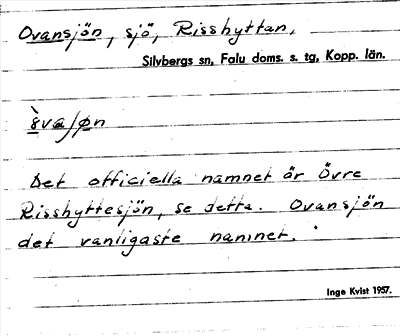 Ovansjön, sjö, Risshyttan,
Silvbergs sn, Falu doms. s. tg, Kopp. län.
Det officiella namnet är Övre
Risshyttesjön, se detta. Ovansjön
det vanligaste namnet.
Inge Kvist 1957.